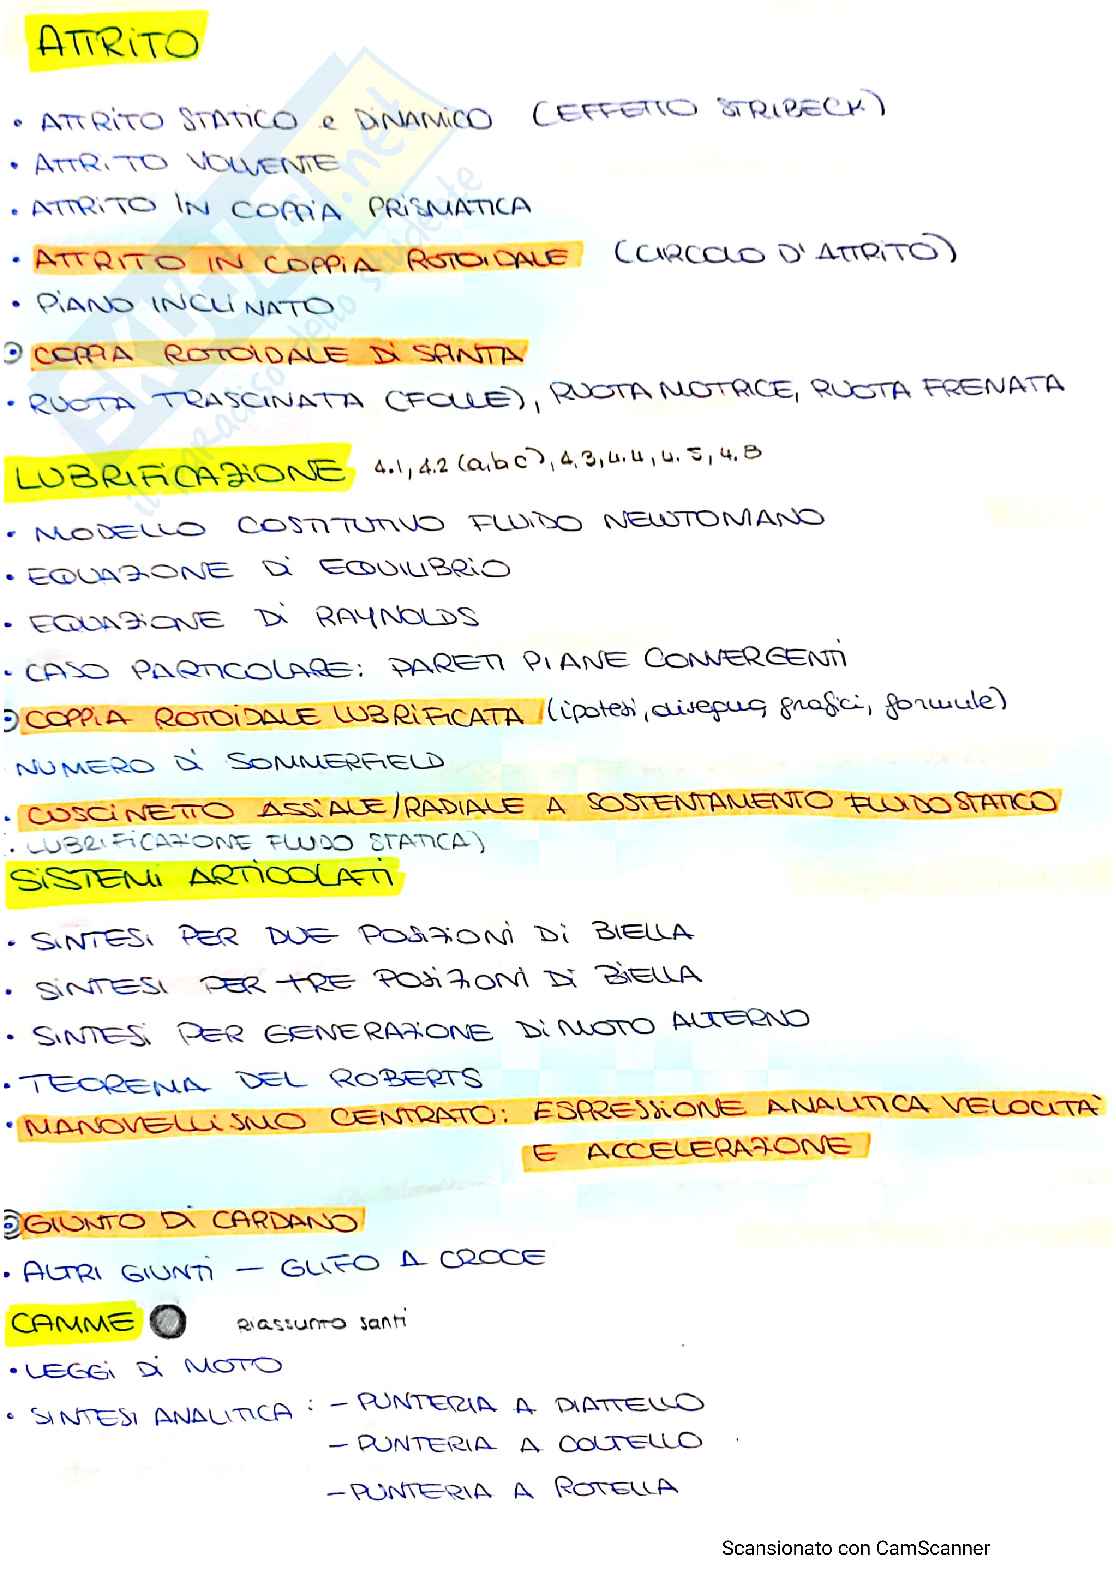 ATTRITO
• ATTRITO STATICO e DINAMICO (EFFETTO STRIBECK)
• ATTRITO VOLVENTE
• ATTRITO IN COPPIA PRISMATICA
• ATTRITO IN COPPIA ROTOIDALE (CIRCOLO D'ATTRITO)
• PIANO INCLINATO
• COPPIA ROTOIDALE DI SPINTA
• RUOTA TRASCINATA (FOLLE), RUOTA MOTRICE, RUOTA FRENATA
LUBRIFICAZIONE 4.1, 4.2 (a,b c), 4.3, 4.4, 4.5, 4.8
• MODELLO COSTITUTIVO FLUIDO NEWTONIANO
• EQUAZIONE DI EQUILIBRIO
• EQUAZIONE DI RAYNOLDS
• CASO PARTICOLARE: PARETI PIANE CONVERGENTI
• COPPIA ROTOIDALE LUBRIFICATA (ipotesi, disegno, grafici, formule)
NUMERO DI SOMMERFIELD
• CUSCINETTO ASSIALE/RADIALE A SOSTENTAMENTO FLUIDOSTATICO
LUBRIFICAZIONE FLUIDO STATICA)
SISTEMI ARTICOLATI
• SINTESI PER DUE POSIZIONI DI BIELLA
• SINTESI PER TRE POSIZIONI DI BIELLA
• SINTESI PER GENERAZIONE DI MOTO ALTERNO
• TEOREMA DEL ROBERTS
• MANOVELLISMO CENTRATO: ESPRESSIONE ANALITICA VELOCITA'
E ACCELERAZIONE
• GIUNTO DI CARDANO
• ALTRI GIUNTI — GLIFO A CROCE
CAMME RIASSUNTO santi
• LEGGI DI MOTO
• SINTESI ANALITICA : - PUNTERIA A PIATTELLO
- PUNTERIA A COLTELLO
- PUNTERIA A ROTELLA
Scansionato con CamScanner
SKUOLA.net
il paradiso dello studente